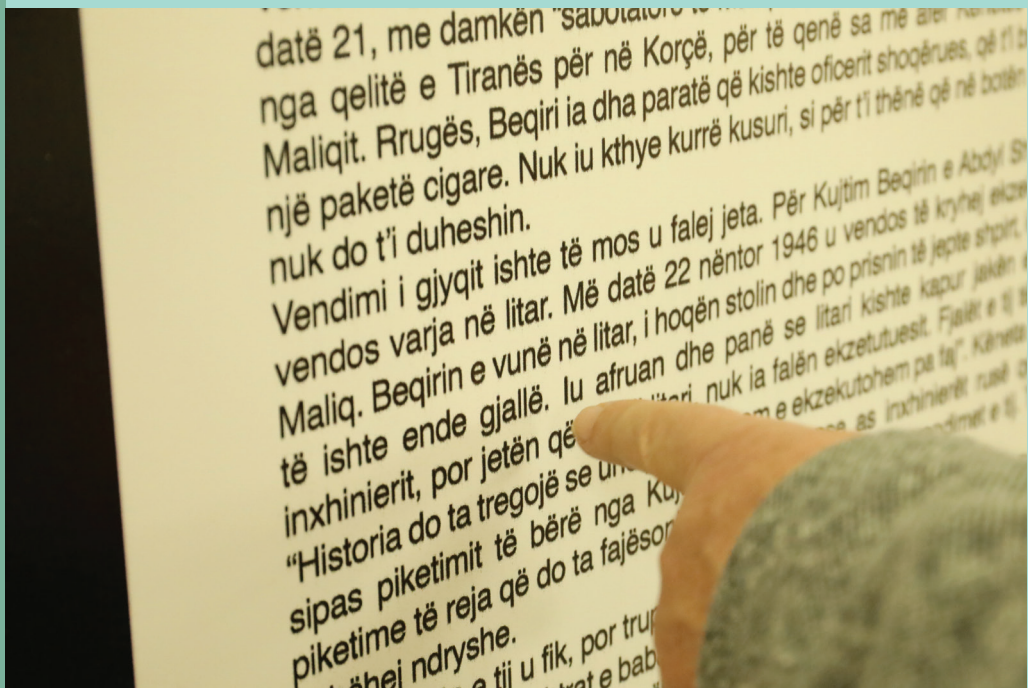 datë 21, me damkën "sabotatorë
nga qelitë e Tiranës për në Korçë, për të qenë sa më afër
Maliqit. Rrugës, Beqiri ia dha paratë që kishte oficerit shoqërues, që t'i
një paketë cigare. Nuk iu kthye kurrë kusuri, si për t'i thënë që në botën
nuk do t'i duheshin.
Vendimi i gjyqit ishte të mos u falej jeta. Për Kujtim Beqirin e Abdyl
vendos varja në litar. Më datë 22 nëntor 1946 u vendos të kryhej
Maliq. Beqirin e vunë në litar, i hoqën stolin dhe po prisnin të jepte shpirt,
të ishte ende gjallë. Iu afruan dhe panë se litari kishte kapur jakën
inxhinierit, por jetën që litari, nuk ia falën ekzetutuesit. Fjalët e tij
"Historia do ta tregojë se e ekzekutohem pa faj". Këneta
sipas piketimit të bërë nga as inxhinierët rusë
piketime të reja që do ta fajëson e tij.
ndryshe.
e tij u fik, por trup
e bab